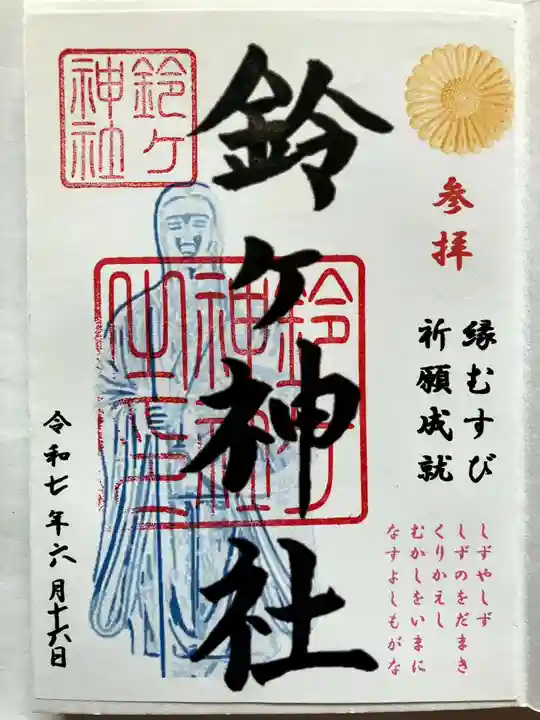 参拝
縁むすび
祈願成就
しずやしず
しずのをだまき
くりかえし
むかしをいまに
なすよしもがな
鈴ヶ神社
鈴ヶ
神社
鈴ヶ
神社
之璽
令和七年六月十六日